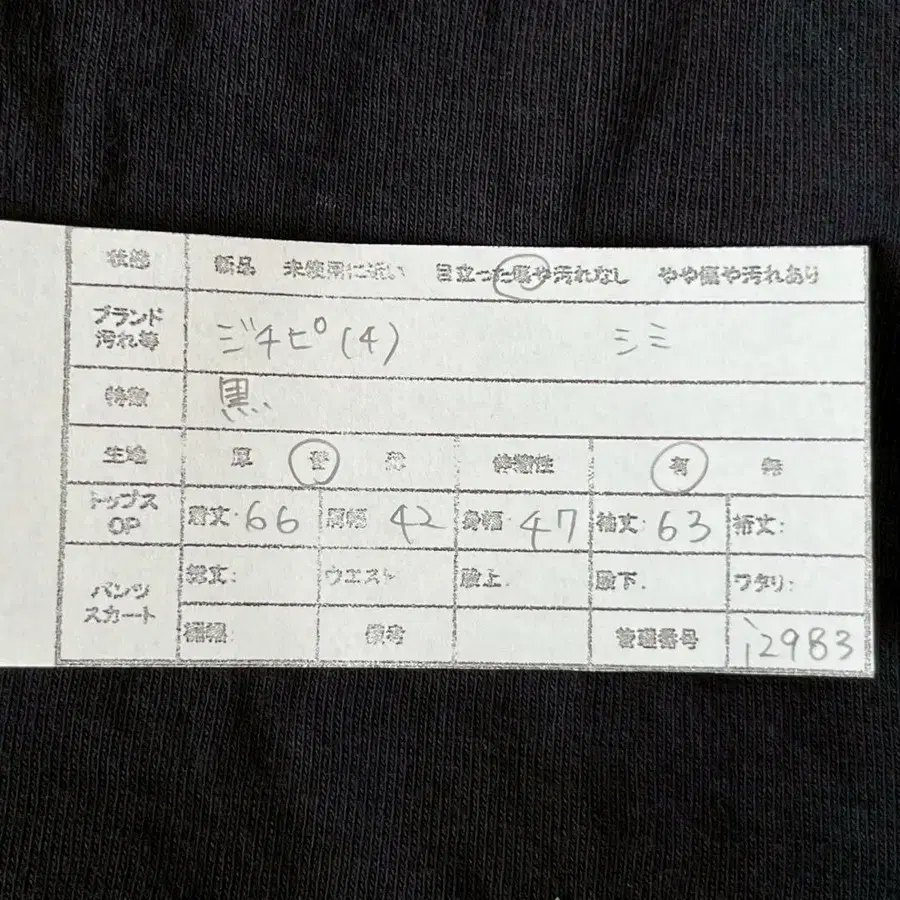 状態 新品 未使用に近い 目立った傷や汚れなし やや傷や汚れあり
ブランド
汚れ等 ジチピ(4) シミ
特徴 黒
生地 厚 普 薄 伸縮性 有 無
トップス
OP 着丈:66 肩幅 42 身幅:47 袖丈:63 裄丈:
パンツ
スカート 総丈: ウエスト 股上: 股下: ワタリ:
裾幅: 備考 管理番号 i2983